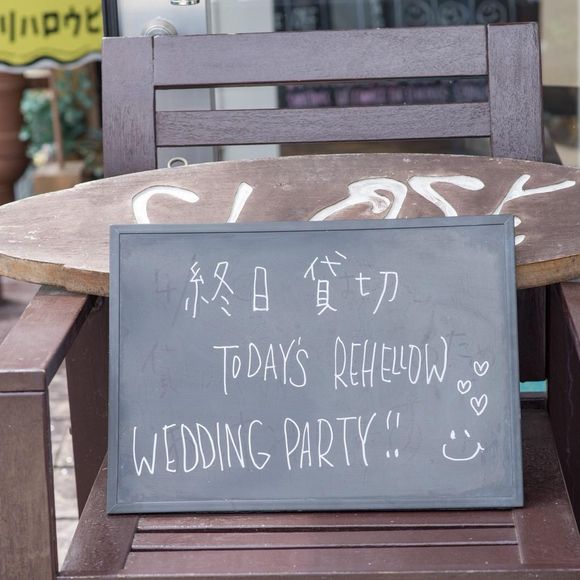 リハロウヒ
CLOSE
終日 貸切
TODAY'S REHELLOW
WEDDING PARTY!!